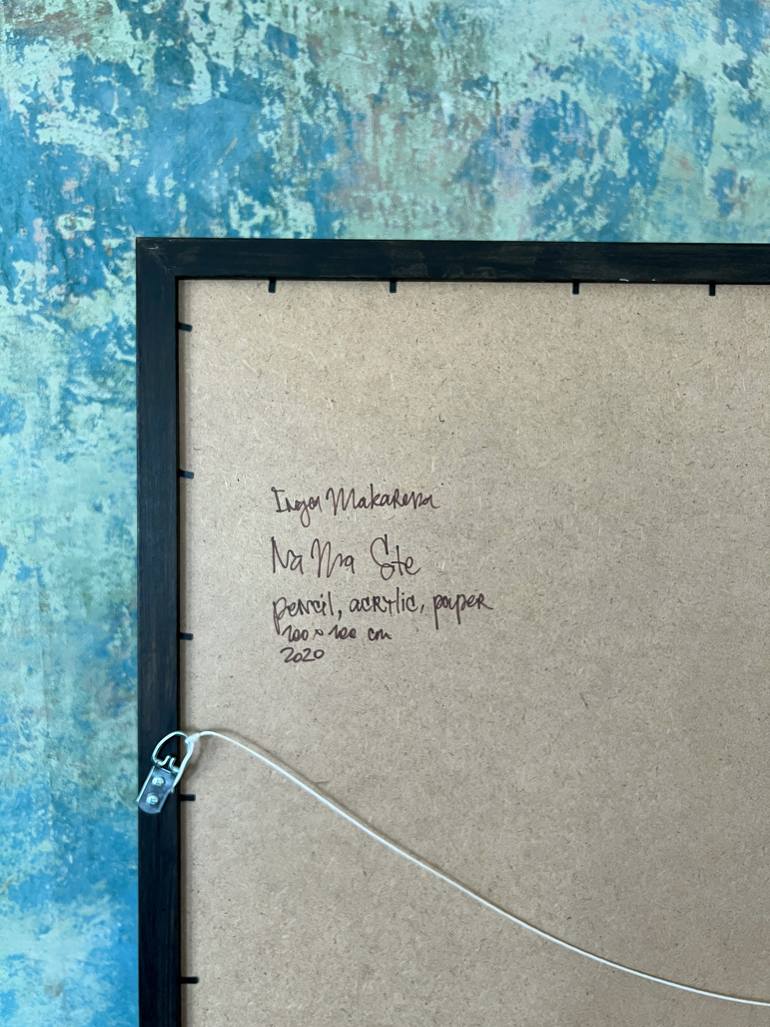 Inga Makarova
Na Ma Ste
pencil, acrylic, paper
100 x 100 cm
2020